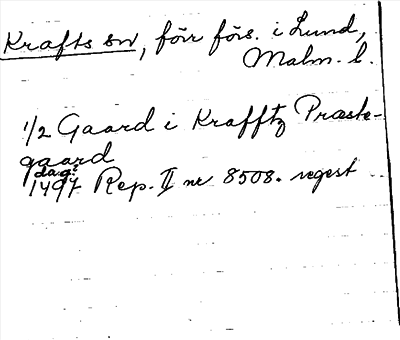 Krafts sn, förr förs. i Lund,
Malm. l.
1/2 Gaard i Krafftz Præste-
gaard
dag.
1497 Rep. II nr 8508. regest